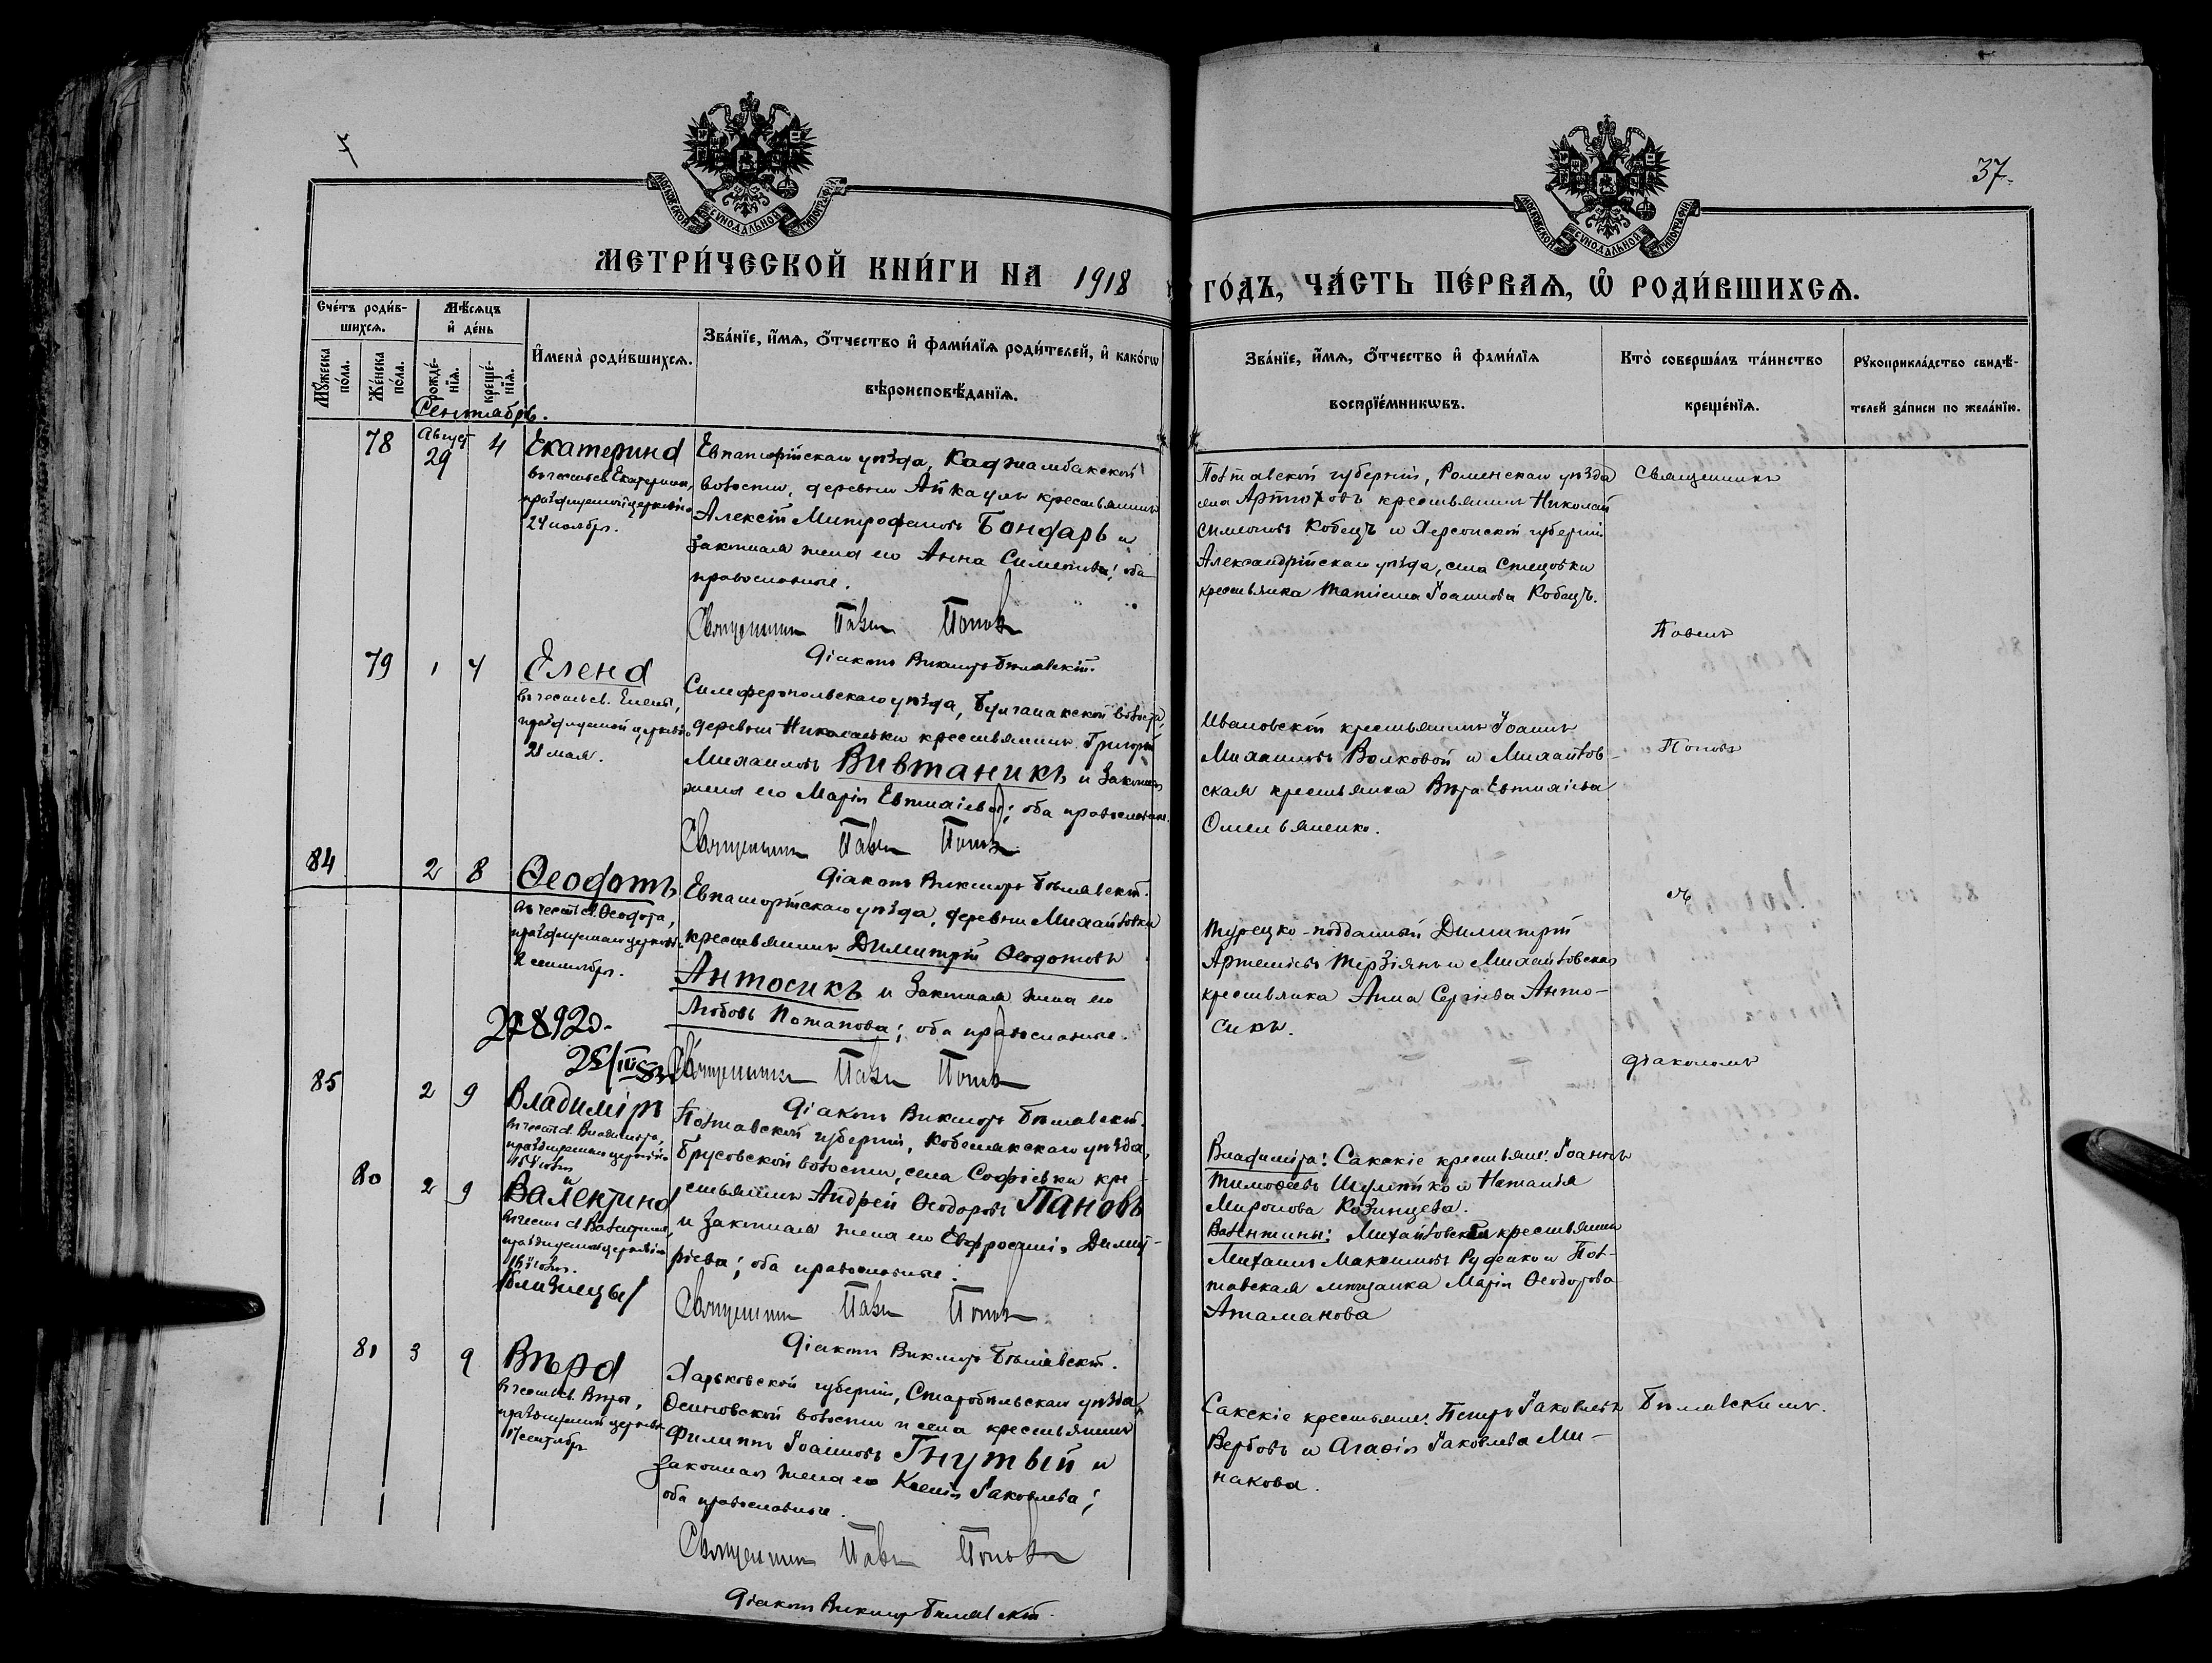 7
37.
МОСКОВСКОЙ СѴНОДАЛЬНОЙ ТИПОГРАФІИ
МОСКОВСКОЙ СѴНОДАЛЬНОЙ ТИПОГРАФІИ
МЕТРИ́ЧЕСКОЙ КНИ́ГИ НА 1918 ГО́ДЪ, ЧА́СТЬ ПЕ́РВАѦ, Ѽ РОДИ́ВШИХСѦ.
Сче́тъ роди́в-
шихсѧ.
Мѣ́сѧцъ
и҆ де́нь
Мꙋ́жеска
по́ла.
Же́нска
по́ла.
рожде́-
нїѧ.
креще́-
нїѧ.
И҆мена̀ роди́вшихсѧ.
Зва́нїе, и҆́мѧ, ѻ҆́тчество и҆ фами́лїѧ роди́телей, и҆ како́гѡ
вѣроисповѣ́данїѧ.
Зва́нїе, и҆́мѧ, ѻ҆́тчество и҆ фами́лїѧ
воспрїе́мникѡвъ.
Кто̀ соверша́лъ та́инство
креще́нїѧ.
Рꙋкоприкла́дство свидѣ́-
телей за́писи по жела́нїю.
Сентябрь.
78
Август
29
4
Екатерина
въ честь св. Екатерины,
празднуемой церковію
24 ноября.
Евпаторійскаго уѣзда, Каджамбакской
волости, деревни Айкаулъ крестьянинъ
Алексѣй Митрофановъ Бондарь и
законная жена его Анна Симеонова; оба
православные.
Священникъ Павелъ Поповъ
Діаконъ Викторъ Бѣлявскій.
Полтавской губерніи, Роменскаго уѣзда
села Артюховъ крестьянинъ Николай
Симеоновъ Кобецъ и Херсонской губерніи
Александрійскаго уѣзда, села Стецовки
крестьянка Татіана Іоаннова Кобецъ.
Священникъ
Павелъ
79
1
4
Елена
въ честь св. Елены,
празднуемой церковію
21 мая.
Симферопольскаго уѣзда, Булганакской волости,
деревни Николаевки крестьянинъ Григорій
Михаиловъ Вивтаникъ и законная
жена его Марія Евтихіева; оба православные.
Священникъ Павелъ Поповъ
Діаконъ Викторъ Бѣлявскій.
Ивановскій крестьянинъ Іоаннъ
Михаиловъ Волковой и Михайлов-
ская крестьянка Вѣра Евтихіева
Омельяненко.
Поповъ
84
2
8
Ѳеодотъ
въ честь св. Ѳеодота,
празднуемаго церковію
2 сентября.
27892
Евпаторійскаго уѣзда, деревни Михайловки
крестьянинъ Димитрій Ѳеодотовъ
Антосикъ и законная жена его
Любовь Потапова; оба православные.
Священникъ Павелъ Поповъ
Діаконъ Викторъ Бѣлявскій.
Турецко-подданный Димитрій
Артеміевъ Терзіянъ и Михайловская
крестьянка Анна Сергіева Анто-
сикъ.
съ
діакономъ
85
2
9
Владиміръ
въ честь св. Владиміра,
празднуемаго церковію
15 іюля
и
80
2
9
Валентина
въ честь св. Валентины,
празднуемой церковію
16 іюля.
близнецы/
Полтавской губерніи, Кобелякскаго уѣзда,
Брусовской волости, села Софіевки кре-
стьянинъ Андрей Ѳеодоровъ Пановъ
и законная жена его Евфросинія Димит-
ріева; оба православные.
Священникъ Павелъ Поповъ
Діаконъ Викторъ Бѣлявскій.
Владиміра: Сакскіе крестьяне: Іоаннъ
Тимоѳеевъ Шулейко и Наталья
Миронова Кобинцева.
Валентины: Михайловскій крестьянинъ
Михаилъ Максимовъ Руденко и Пол-
тавская мѣщанка Марія Ѳеодорова
Атаманова
81
3
9
Вѣра
въ честь св. Вѣры,
празднуемой церковію
17 сентября
Харьковской губерніи, Старобѣльскаго уѣзда,
Осиновской волости и села крестьянинъ
Филиппъ Іоанновъ Гнутый и
законная жена его Ксенія Іаковлева;
оба православные.
Священникъ Павелъ Поповъ
Діаконъ Викторъ Бѣлявскій.
Сакскіе крестьяне: Петръ Іаковлевъ
Вербовъ и Агаѳія Іаковлева Ми-
накова.
Бѣлявскимъ.